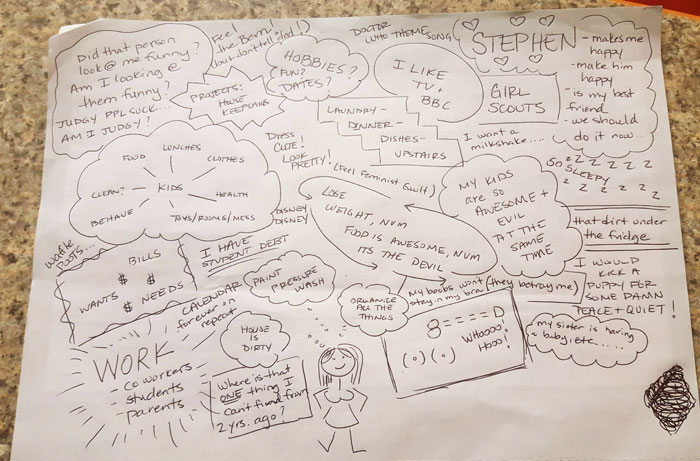 Did that person
look @ me funny?
Am I looking @
them funny?
JUDGY PPL SUCK...
AM I JUDGY?
Feel
the Bern!
(but don't tell dad!)
PROJECTS:
HOUSE
KEEPSAKE
HOBBIES?
FUN?
DATES?
DOCTOR
WHO THEME
SONG
I LIKE
TV +
BBC
STEPHEN
- makes me
happy
- make him
happy
- is my best
friend
- we should
do it now...
GIRL
SCOUTS
LAUNDRY-
DINNER-
DISHES-
UPSTAIRS
I want a
milkshake....
Dress
CUTE!
LOOK
PRETTY!
(Feel Feminist Guilt)
FOOD
LUNCHES
CLOTHES
CLEAN?
KIDS
HEALTH
BEHAVE
TOYS/ROOMS/MESS
DISNEY
DISNEY
LOSE
WEIGHT, NUM
FOOD IS AWESOME, NUM
ITS THE DEVIL
MY KIDS
are so
AWESOME +
EVIL
AT THE
SAME
TIME
SO SLEEPY
z z z z z z z
z z z z z z
that dirt under
the fridge
waffle
POSTS...
BILLS
$
WANTS $ $ NEEDS
I HAVE
STUDENT DEBT
CALENDAR
forever on
repeat
PAINT PRESSURE
WASH
ORGANIZE
ALL THE
THINGS
My boobs won't (they betray me)
stay in my bra!
8====D
(o)(o)
WHOOOO!
HOOO!
I WOULD
KICK A
PUPPY FOR
SOME DAMN
PEACE + QUIET!
my sister is having
a baby, etc.....
WORK
- coworkers
- students
- parents
HOUSE
IS
DIRTY
Where is that
ONE thing I
can't find from
2 yrs. ago?